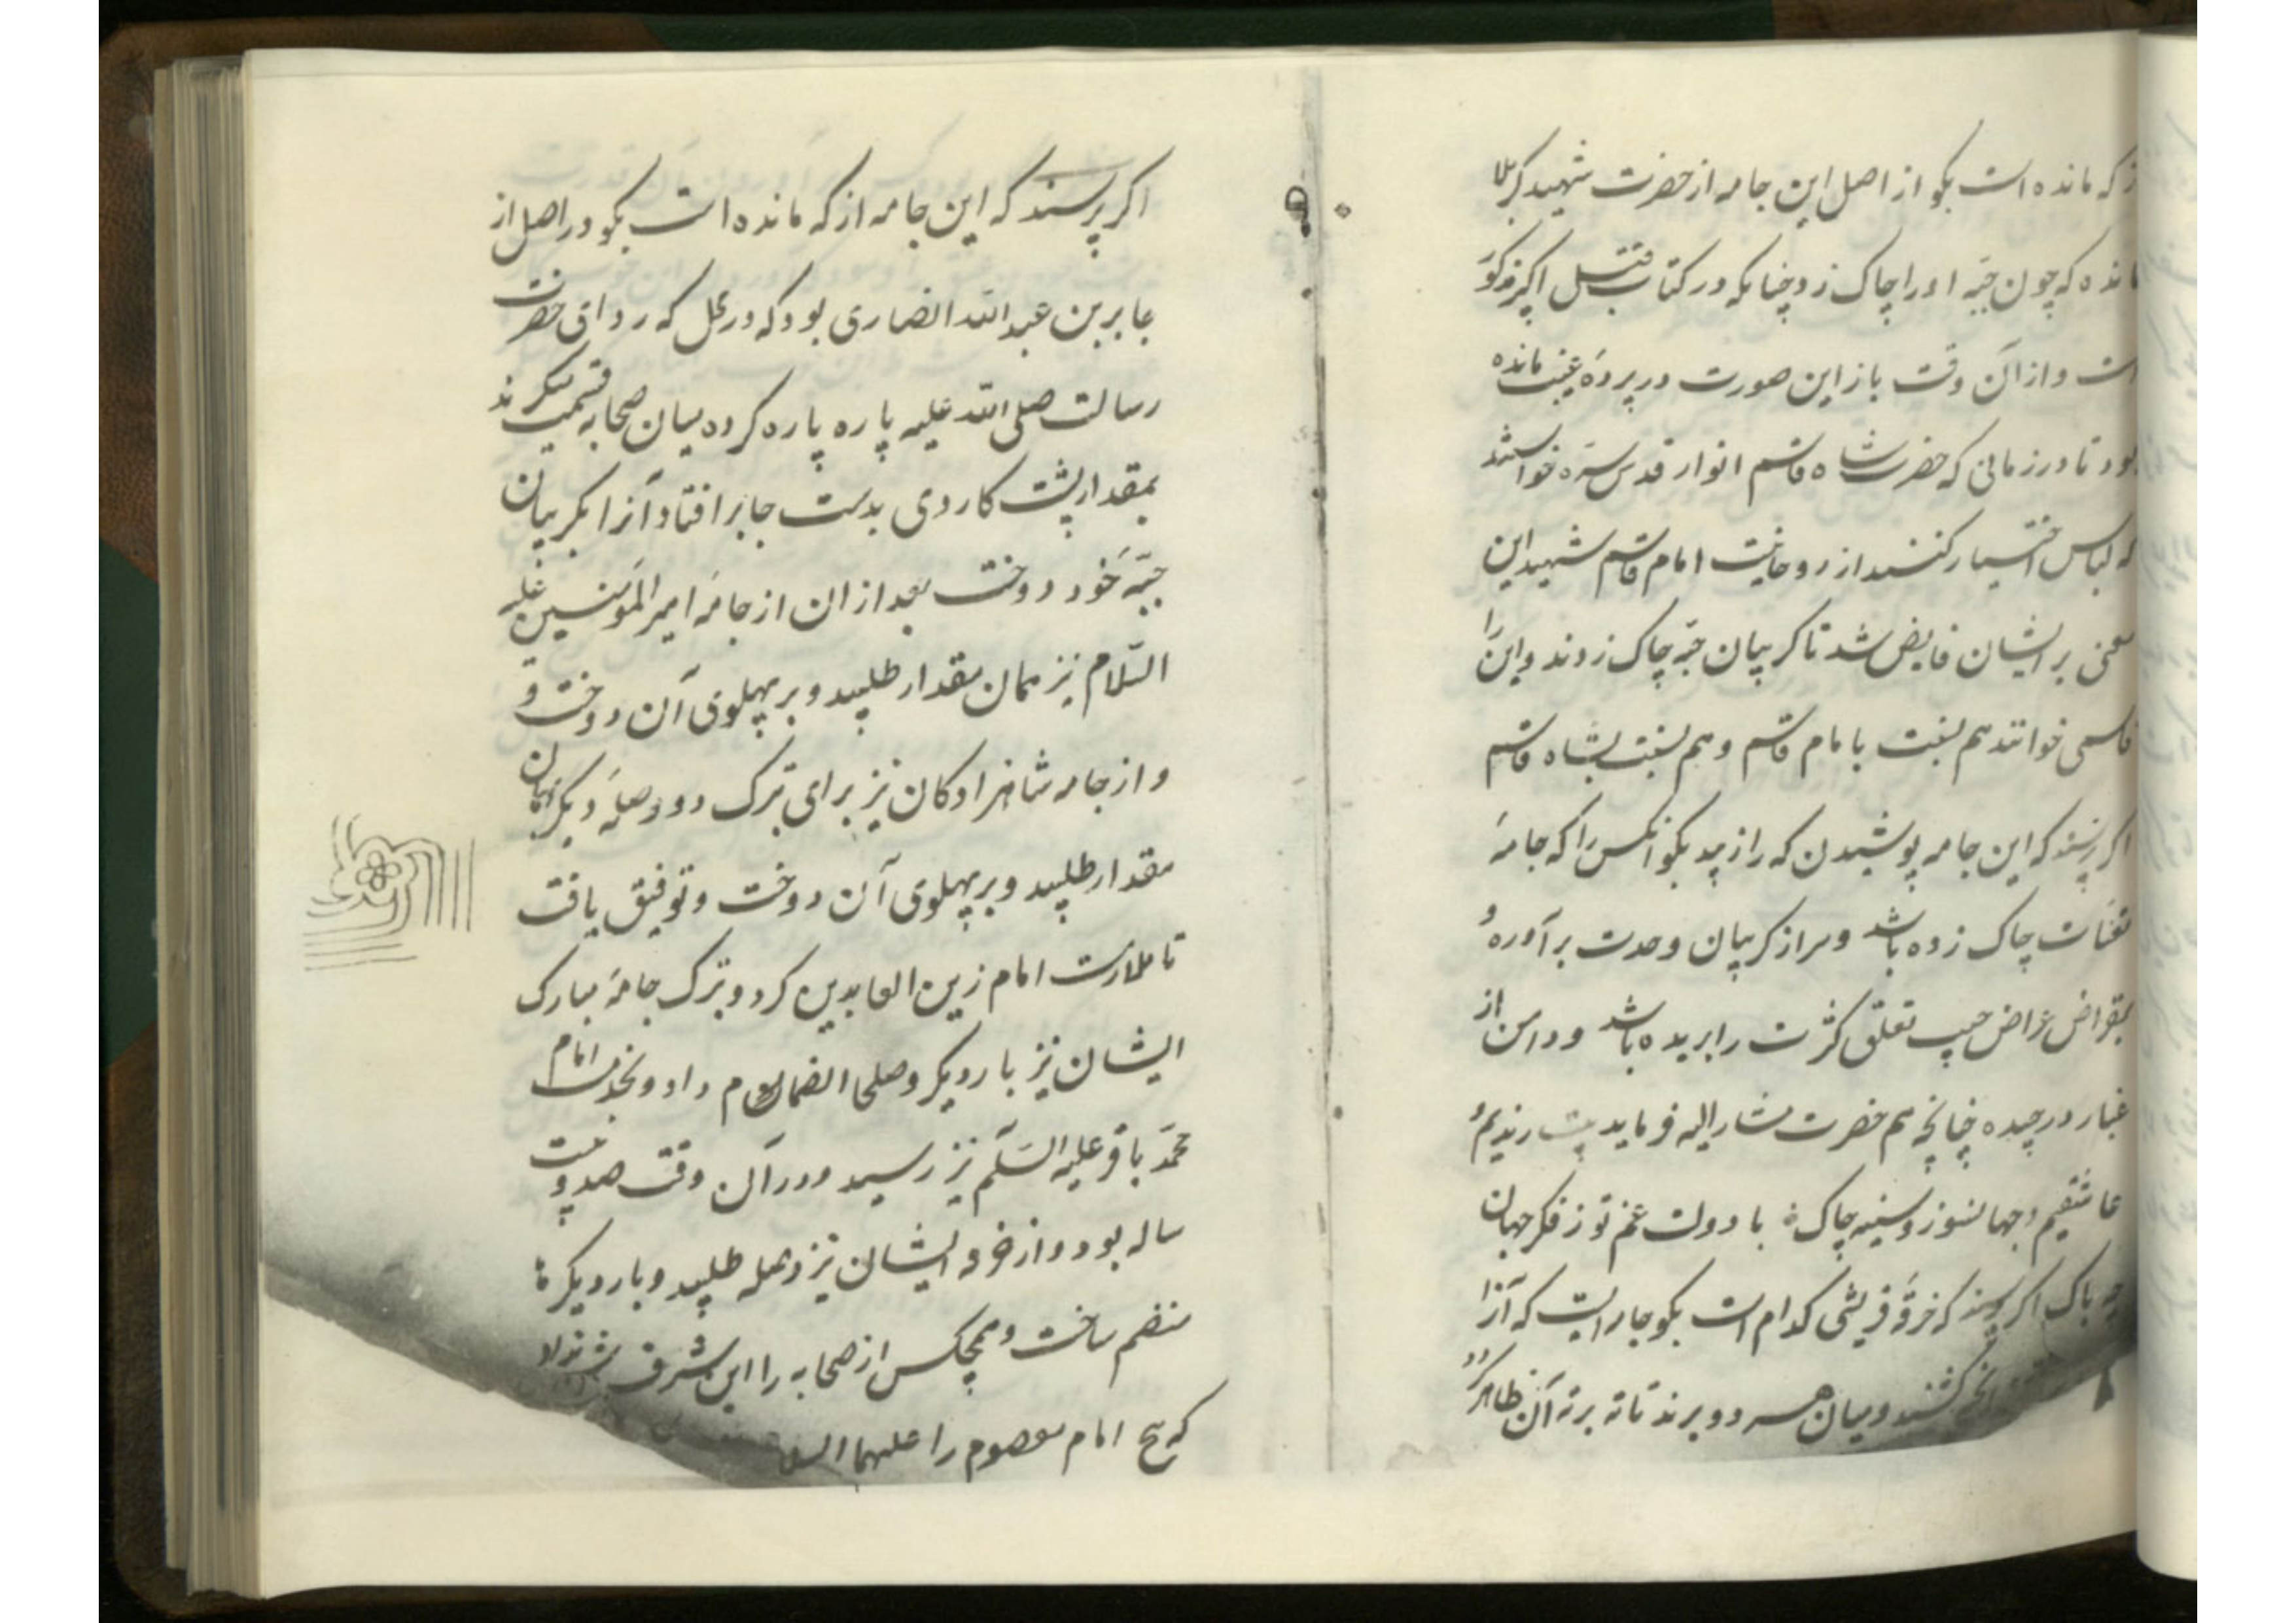 که مانده است بکو از اصل این جامه از حضرت شهید کربلا
مانده که چون جبه او را چاک زد چنانکه در کتاب مقتل اکبر مذکور
است و از آن وقت باز این صورت در پردۀ غیب مانده
بود تا در زمانی که حضرت شاه قاسم انوار قدس سره خواستند
که لباس اختیار کنند از روحانیت امام قاسم شهید این
معنی بر ایشان فایض شد تا کریبان جبه چاک زدند و این را
قاسمی خوانند هم بنسبت بامام قاسم و هم بنسبت بشاه قاسم
اکر پرسند که این جامه پوشیدن که را زیبد بکو آنکس را که جامۀ
تعینات چاک زده باشد و سر از کریبان وحدت برآورده و
بمقراض اعراض جیب تعلق کثرت را بریده باشد و دامن از
غبار درچیده چنانچه هم حضرت مشار الیه فرماید رندیم و
عاشقیم و جهانسوز و سینه چاک با دولت غم تو ز فکر جهان
چه باک اکر پرسند که خرقۀ قریشی کدام است بکو جامه ایست که آنرا
کشند و میان هر دو برند تا ته برته آن ظاهر کردد
اکر پرسند که این جامه از که مانده است بکو در اصل از
جابر بن عبدالله انصاری بود که در محل که ردای حضرت
رسالت صلی الله علیه پاره پاره کرده میان صحابه قسمت میکردند
بمقدار پشت کاردی بدست جابر افتاد آنرا بکریبان
جبۀ خود دوخت بعد از ان از جامۀ امیر المؤمنین علیه
السلام نیز همان مقدار طلبید و بر پهلوی آن دوخت و
و از جامه شاهزادکان نیز برای تبرک دو وصلۀ دیکر بهمان
مقدار طلبید و بر پهلوی آن دوخت و توفیق یافت
تا ملازمت امام زین العابدین کرد و تبرک جامۀ مبارک
ایشان نیز بار دیکر وصلها انضمام داد و بخدمت امام
محمد باقر علیه السلم نیز رسید و در آن وقت صد و بیست
ساله بود و از خرقه ایشان نیز وصله طلبید و بار دیکرها
منضم ساخت و هیچکس از صحابه را این شرف نشد
که پنج امام معصوم را علیهما السلام